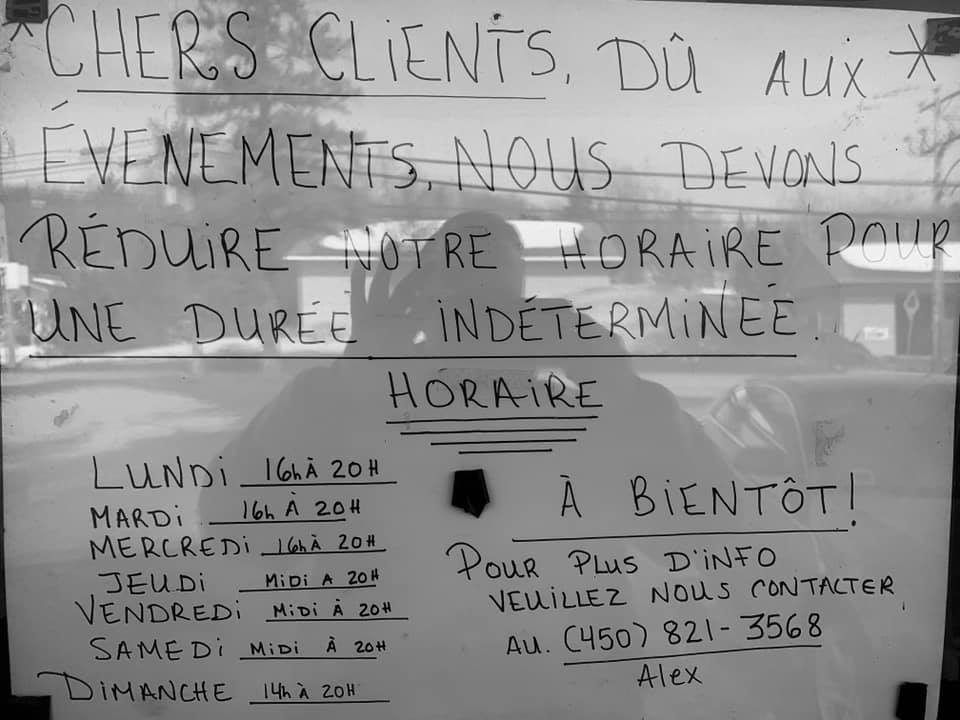 *CHERS CLIENTS, DÛ AUX *
ÉVENEMENTS, NOUS DEVONS
RÉDUIRE NOTRE HORAIRE POUR
UNE DURÉE INDÉTERMINÉE.
HORAIRE
LUNDI 16h À 20H
MARDI 16h À 20H
MERCREDI 16h À 20H
JEUDI MIDI A 20H
VENDREDI MIDI À 20H
SAMEDI MIDI À 20H
DIMANCHE 14h À 20H
À BIENTÔT!
POUR PLUS D'INFO
VEUILLEZ NOUS CONTACTER,
AU. (450) 821-3568
Alex